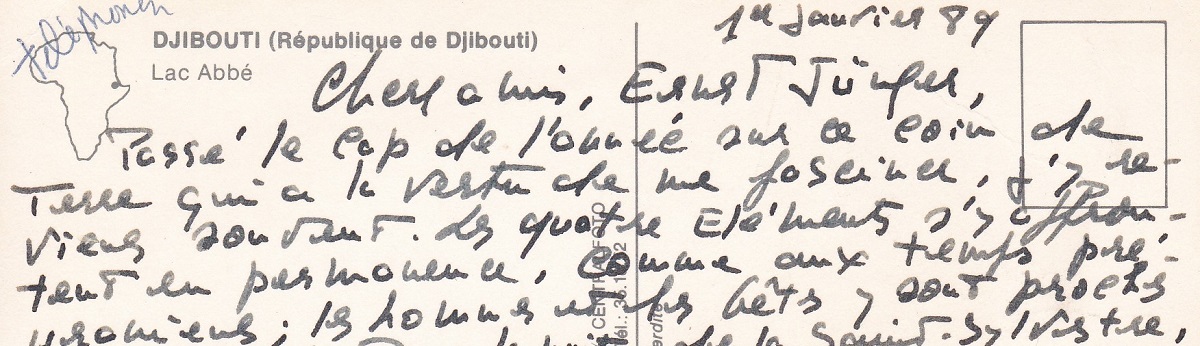 téléphoner
1er Janvier 89
DJIBOUTI (République de Djibouti)
Lac Abbé
Chers amis, Ernst Jünger,
Passé le cap de l'année sur ce coin de
Terre qui a la vertu de me fasciner, j'y re-
viens souvent. Les quatre Eléments s'y affron-
tent en permanence, comme aux temps pré-
; les hommes et les bêtes y sont proches
de la Saint-Sylvestre,
CENTR FOTO
Tél.: